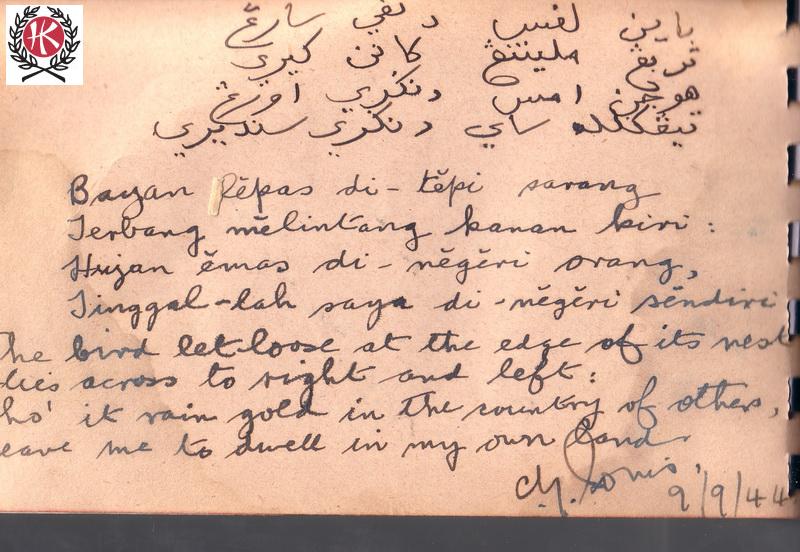 HK
باين لفس دتفي سارڠ
تربڠ ملينتڠ کانن کيري
هوجن امس دنکري اورڠ
تيڠککله ساي دنکري سنديري
Bayan lĕpas di-tĕpi sarang
Terbang mĕlintang kanan kiri:
Hujan ĕmas di-nĕgĕri orang,
Tinggal-lah saya di-nĕgĕri sĕndiri
he bird let loose at the edge of its nest
lies across to right and left:
ho' it rain gold in the country of others,
eave me to dwell in my own land
9/9/44